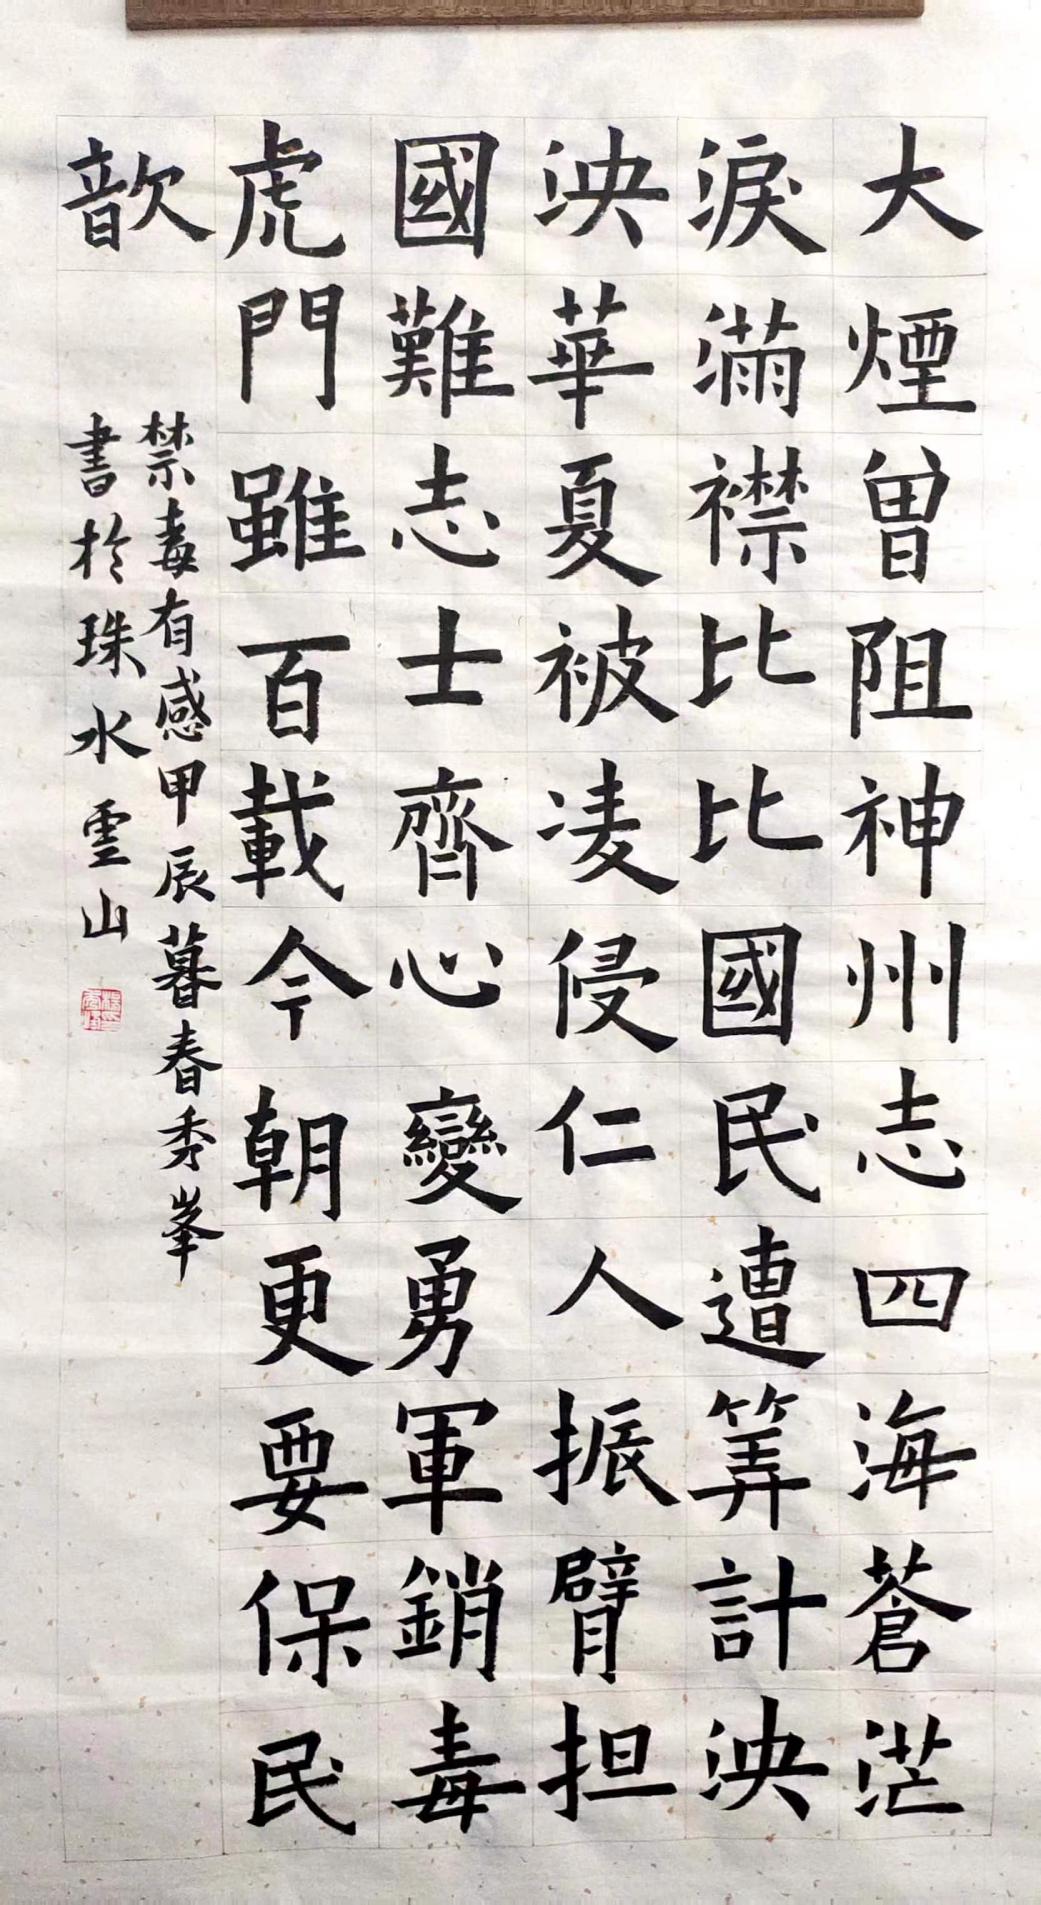 大煙曾阻神州志四海蒼茫
淚滿襟比比國民遭筭計泱
泱華夏被凌侵仁人振臂担
國難志士齊心變勇軍銷毒
虎門雖百載今朝更要保民
歆
禁毒有感甲辰暮春秀峯
書於珠水雲山